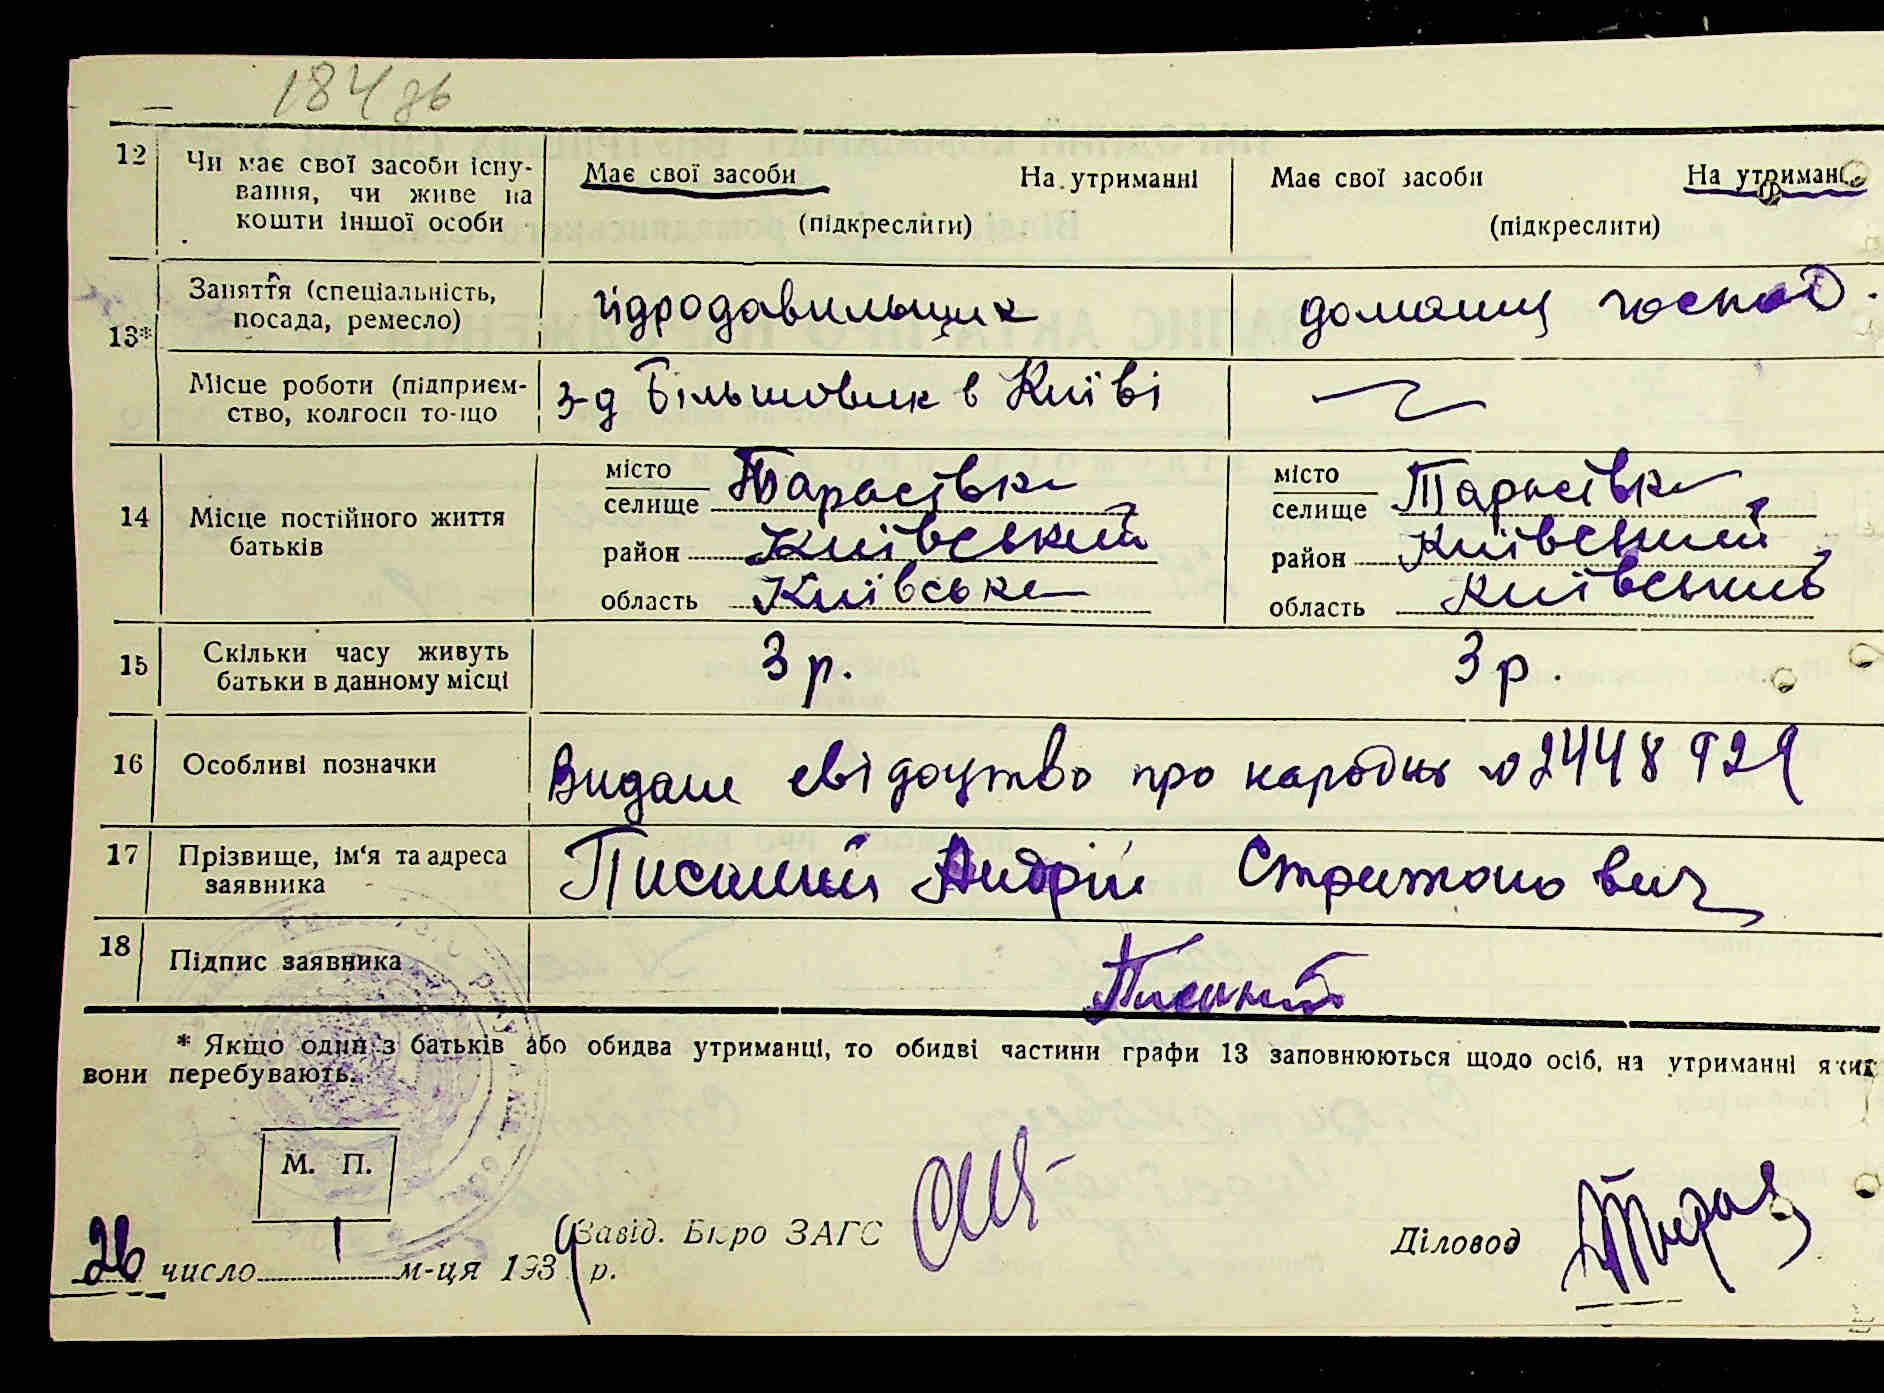 184 зв
12 Чи має свої засоби існу- Має свої засоби На утриманні Має свої засоби На утриманні
вання, чи живе на
кошти іншої особи (підкреслити) (підкреслити)
13* Заняття (спеціальність, гідродавильщик домашн господ.
посада, ремесло)
Місце роботи (підприєм- з-д Більшовик в Київі
ство, колгосп то-що
14 Місце постійного життя місто Тарасівка місто Тарасівка
батьків селище селище
район Київський район Київський
область Київська область
15 Скільки часу живуть 3 р. 3 р.
батьки в данному місці
16 Особливі позначки Видане свідоцтво про народж № 2448929
17 Прізвище, ім'я та адреса Писаний Андрій
заявника
18 Підпис заявника Писаний
* Якщо один з батьків або обидва утриманці, то обидві частини графи 13 заповнюються щодо осіб, на утриманні яких
вони перебувають.
М. П.
Завід. Бюро ЗАГС Діловод
26 число 1 м-ця 1939 р.